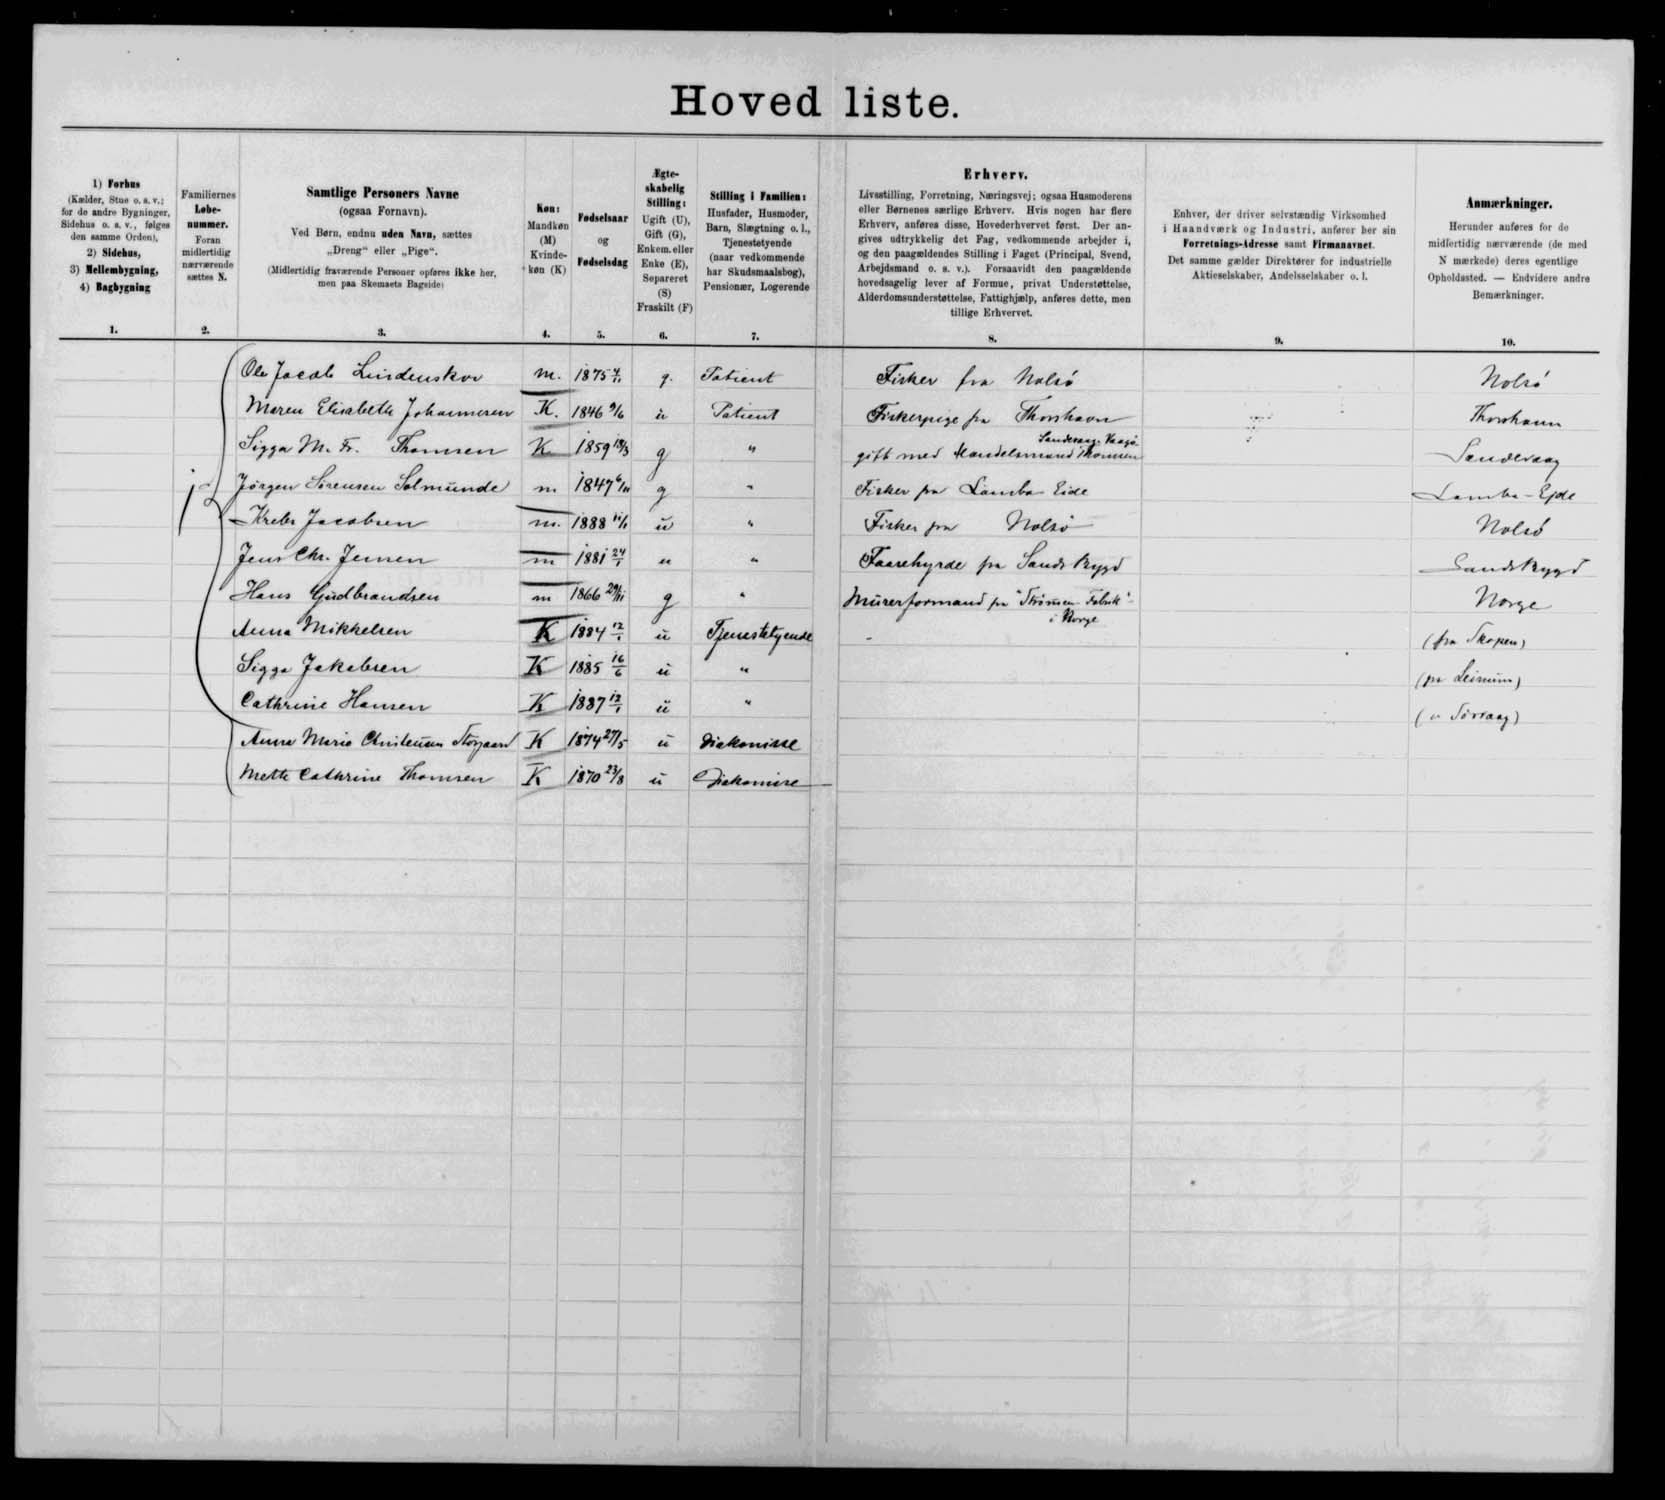 Hoved liste.
1) Forhus
(Kælder, Stue o. s. v.;
for de andre Bygninger,
Sidehus o. s. v., følges
den samme Orden),
2) Sidehus,
3) Mellembygning,
4) Bagbygning
1.
Familiernes
Løbe-
nummer.
Foran
midlertidig
nærværende
sættes N.
2.
Samtlige Personers Navne
(ogsaa Fornavn).
Ved Børn, endnu uden Navn, sættes
„Dreng“ eller „Pige“.
(Midlertidig fraværende Personer opføres ikke her,
men paa Skemaets Bagside)
3.
Køn:
Mandkøn
(M)
Kvinde-
køn (K)
4.
Fødselsaar
og
Fødselsdag
5.
Ægte-
skabelig
Stilling:
Ugift (U),
Gift (G),
Enkem. eller
Enke (E),
Separeret
(S)
Fraskilt (F)
6.
Stilling i Familien:
Husfader, Husmoder,
Barn, Slægtning o. l.,
Tjenestetyende
(naar vedkommende
har Skudsmaalsbog),
Pensionær, Logerende
7.
Erhverv.
Livsstilling, Forretning, Næringsvej; ogsaa Husmoderens
eller Børnenes særlige Erhverv. Hvis nogen har flere
Erhverv, anføres disse, Hovederhvervet først. Der an-
gives udtrykkelig det Fag, vedkommende arbejder i,
og den paagældendes Stilling i Faget (Principal, Svend,
Arbejdsmand o. s. v.). Forsaavidt den paagældende
hovedsagelig lever af Formue, privat Understøttelse,
Alderdomsunderstøttelse, Fattighjælp, anføres dette, men
tillige Erhvervet.
8.
Enhver, der driver selvstændig Virksomhed
i Haandværk og Industri, anfører her sin
Forretnings-Adresse samt Firmanavnet.
Det samme gælder Direktører for industrielle
Aktieselskaber, Andelsselskaber o. l.
9.
Anmærkninger.
Herunder anføres for de
midlertidig nærværende (de med
N mærkede) deres egentlige
Opholdssted. — Endvidere andre
Bemærkninger.
10.
Ole Jacob Lindenskov m. 1875 g. Patient Fisker fra Nolsø Nolsø
Maren Elisabeth Johannesen K. 1846 9/6 u Patient Fiskerpige fra Thorshavn Thorshavn
Sigga M. Fr. Thomsen K 1859 g " gift med Handelsmand Thomsen Sandevaag Vaagø Sandevaag
Jørgen Sørensen Solmunde m 1847 g " Fisker fra Lamba Eide Lamba-Ejde
Krebs Jacobsen m. 1888 11/1 u " Fisker fra Nolsø Nolsø
Jens Chr. Jensen m 1881 24/1 u " Faarehyrde fra Sands Bygd Sands Bygd
Hans Gudbrandsen m 1866 29/11 g " Murerformand fra "Strømsen Fabrik" i Norge Norge
Anna Mikkelsen K 1884 12/1 u Tjenestetyende - (fra Skopen)
Sigga Jakobsen K 1885 16/6 u " (fra Leinum)
Cathrine Hansen K 1887 12/1 u " (" Sørvaag)
Anna Marie Christensen Storgaard K 1874 27/5 u Diakonisse
Mette Cathrine Thomsen K 1870 23/8 u Diakonisse